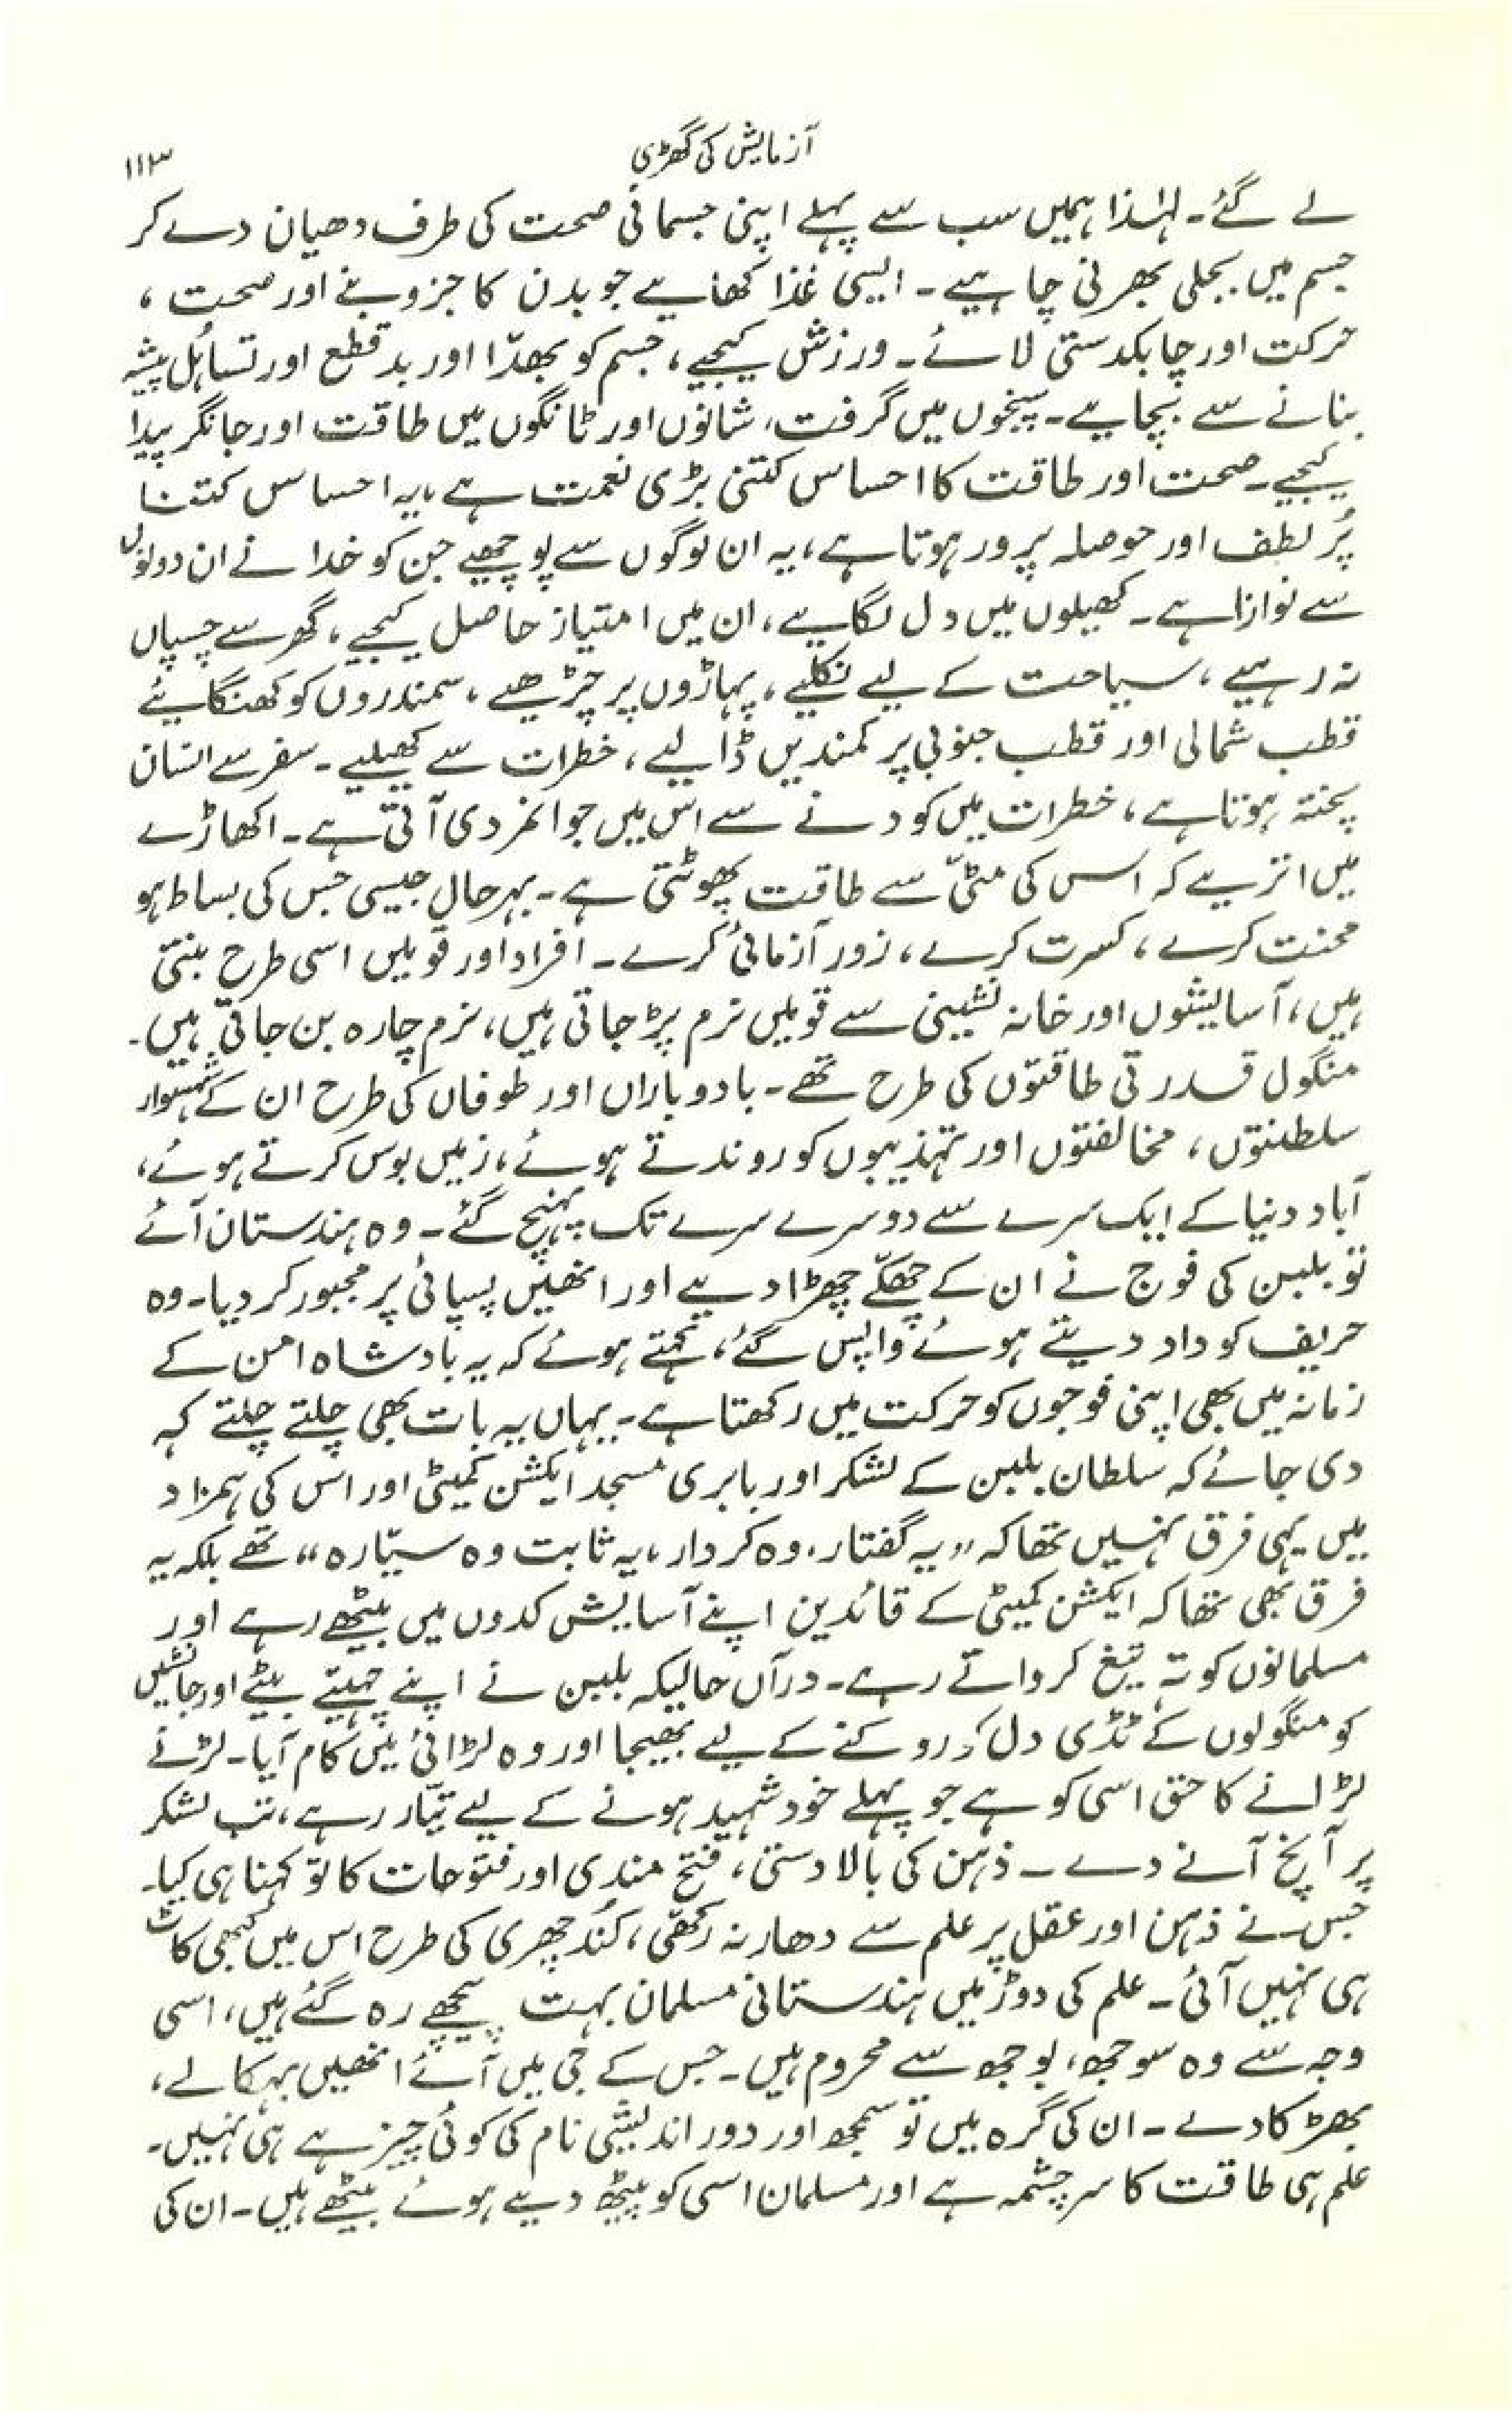 آزمایش کی گھڑی
۱۱۳
لے گئے۔ لہٰذا ہمیں سب سے پہلے اپنی جسمانی صحت کی طرف دھیان دے کر
جسم میں بجلی بھرنی چاہیے۔ ایسی غذا کھایے جو بدن کا جزو بنے اور صحت،
حرکت اور چابکدستی لائے۔ ورزش کیجیے، جسم کو بھدّا اور بد قطع اور تساہُل پیشہ
بنانے سے بچایے۔ پنجوں میں گرفت، شانوں اور ٹانگوں میں طاقت اور جانگر پیدا
کیجیے۔ صحت اور طاقت کا احساس کتنی بڑی نعمت ہے، یہ احساس کتنا
پُر لطف اور حوصلہ پرور ہوتا ہے، یہ ان لوگوں سے پوچھیے جن کو خدا نے ان دونوں
سے نوازا ہے۔ کھیلوں میں دل لگایے، ان میں امتیاز حاصل کیجیے، گھر سے چسپاں
نہ رہیے، سیاحت کے لیے نکلیے، پہاڑوں پر چڑھیے، سمندروں کو کھنگایئے
قطب شمالی اور قطب جنوبی پر کمندیں ڈالیے، خطرات سے کھیلیے۔ سفر سے انسان
پختہ ہوتا ہے، خطرات میں کودنے سے اس میں جوانمردی آتی ہے۔ اکھاڑے
میں اتریے کہ اس کی مٹّی سے طاقت پھوٹتی ہے۔ بہرحال جیسی جس کی بساط ہو
محنت کرے، کسرت کرے، زور آزمائی کرے۔ افراد اور قومیں اسی طرح بنتی
ہیں، آسایشوں اور خانہ نشینی سے قومیں نرم پڑ جاتی ہیں، نرم چارہ بن جاتی ہیں۔
منگول قدرتی طاقتوں کی طرح تھے۔ باد و باراں اور طوفاں کی طرح ان کے شہسوار
سلطنتوں، مخالفتوں اور تہذیبوں کو روندتے ہوئے، زمیں بوس کرتے ہوئے،
آباد دنیا کے ایک سرے سے دوسرے سرے تک پہنچ گئے۔ وہ ہندستان آئے
تو بلبن کی فوج نے ان کے چھکّے چھڑا دیے اور انھیں پسپائی پر مجبور کر دیا۔ وہ
حریف کو داد دیتے ہوئے واپس گئے، کہتے ہوئے کہ یہ بادشاہ امن کے
زمانہ میں بھی اپنی فوجوں کو حرکت میں رکھتا ہے۔ یہاں یہ بات بھی چلتے چلتے کہہ
دی جائے کہ سلطان بلبن کے لشکر اور بابری مسجد ایکشن کمیٹی اور اس کی ہمزاد
میں یہی فرق نہیں تھا کہ "یہ گفتار، وہ کردار، یہ ثابت وہ سیّارہ" تھے بلکہ یہ
فرق بھی تھا کہ ایکشن کمیٹی کے قائدین اپنے آسایش کدوں میں بیٹھے رہے اور
مسلمانوں کو تہ تیغ کرواتے رہے۔ درآں حالیکہ بلبن نے اپنے چہیتے بیٹے اور جانشیں
کو منگولوں کے ٹڈی دل کو روکنے کے لیے بھیجا اور وہ لڑائی میں کام آیا۔ لڑنے
لڑانے کا حق اسی کو ہے جو پہلے خود شہید ہونے کے لیے تیّار رہے، تب لشکر
پر آنچ آنے دے ــ ذہن کی بالادستی، فتح مندی اور فتوحات کا تو کہنا ہی کیا۔
جس نے ذہن اور عقل پر علم سے دھار نہ رکھی، کُند چھری کی طرح اس میں کبھی کاٹ
ہی نہیں آئی۔ علم کی دوڑ میں ہندستانی مسلمان بہت پیچھے رہ گئے ہیں، اسی
وجہ سے وہ سوجھ، بوجھ سے محروم ہیں۔ جس کے جی میں آئے انھیں بہکالے،
بھڑکا دے۔ ان کی گرہ میں تو سمجھ اور دور اندیشی نام کی کوئی چیز ہے ہی نہیں۔
علم ہی طاقت کا سرچشمہ ہے اور مسلمان اسی کو پیٹھ دیے ہوئے بیٹھے ہیں۔ ان کی